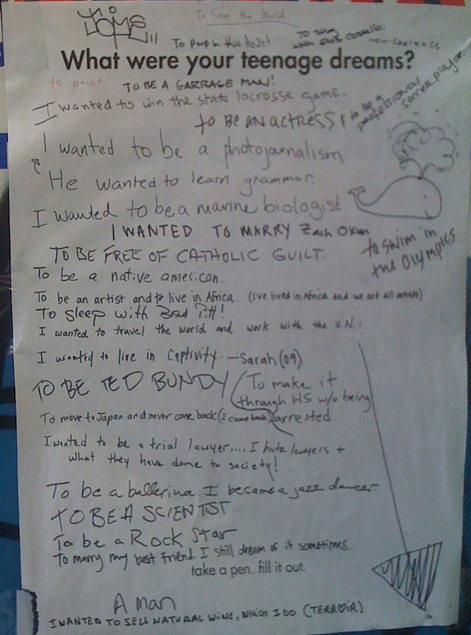 To Save the World.
To poop in this toilet
To sing with Elvis Costello.
What were your teenage dreams?
to paint
TO BE A GARBAGE MAN!
I wanted to win the state lacrosse game.
to be a professional soccer player
TO BE AN ACTRESS!
I wanted to be a photojournalism
He wanted to learn grammar.
I wanted to be a marine biologist
I WANTED TO MARRY Zach
to swim in the OLYMPICS
TO BE FREE OF CATHOLIC GUILT.
To be a native american.
To be an artist and to live in Africa. (I've lived in Africa and we art all artists)
To sleep with Brad Pitt!
I wanted to travel the world and work with the U.N.!
I wanted to live in captivity. —Sarah (09)
TO BE TED BUNDY
To make it through HS w/o being arrested
To move to Japan and never come back (I came back)
I wanted to be a trial lawyer.... I hate lawyers +
what they have done to society!
To be a ballerina. I became a jazz dancer.
TO BE A SCIENTIST
To be a Rock Star
To marry my best friend. I still dream of it sometimes.
take a pen. fill it out.
A man
I WANTED TO SELL NATURAL WINE, WHICH I DO (TERROIR)